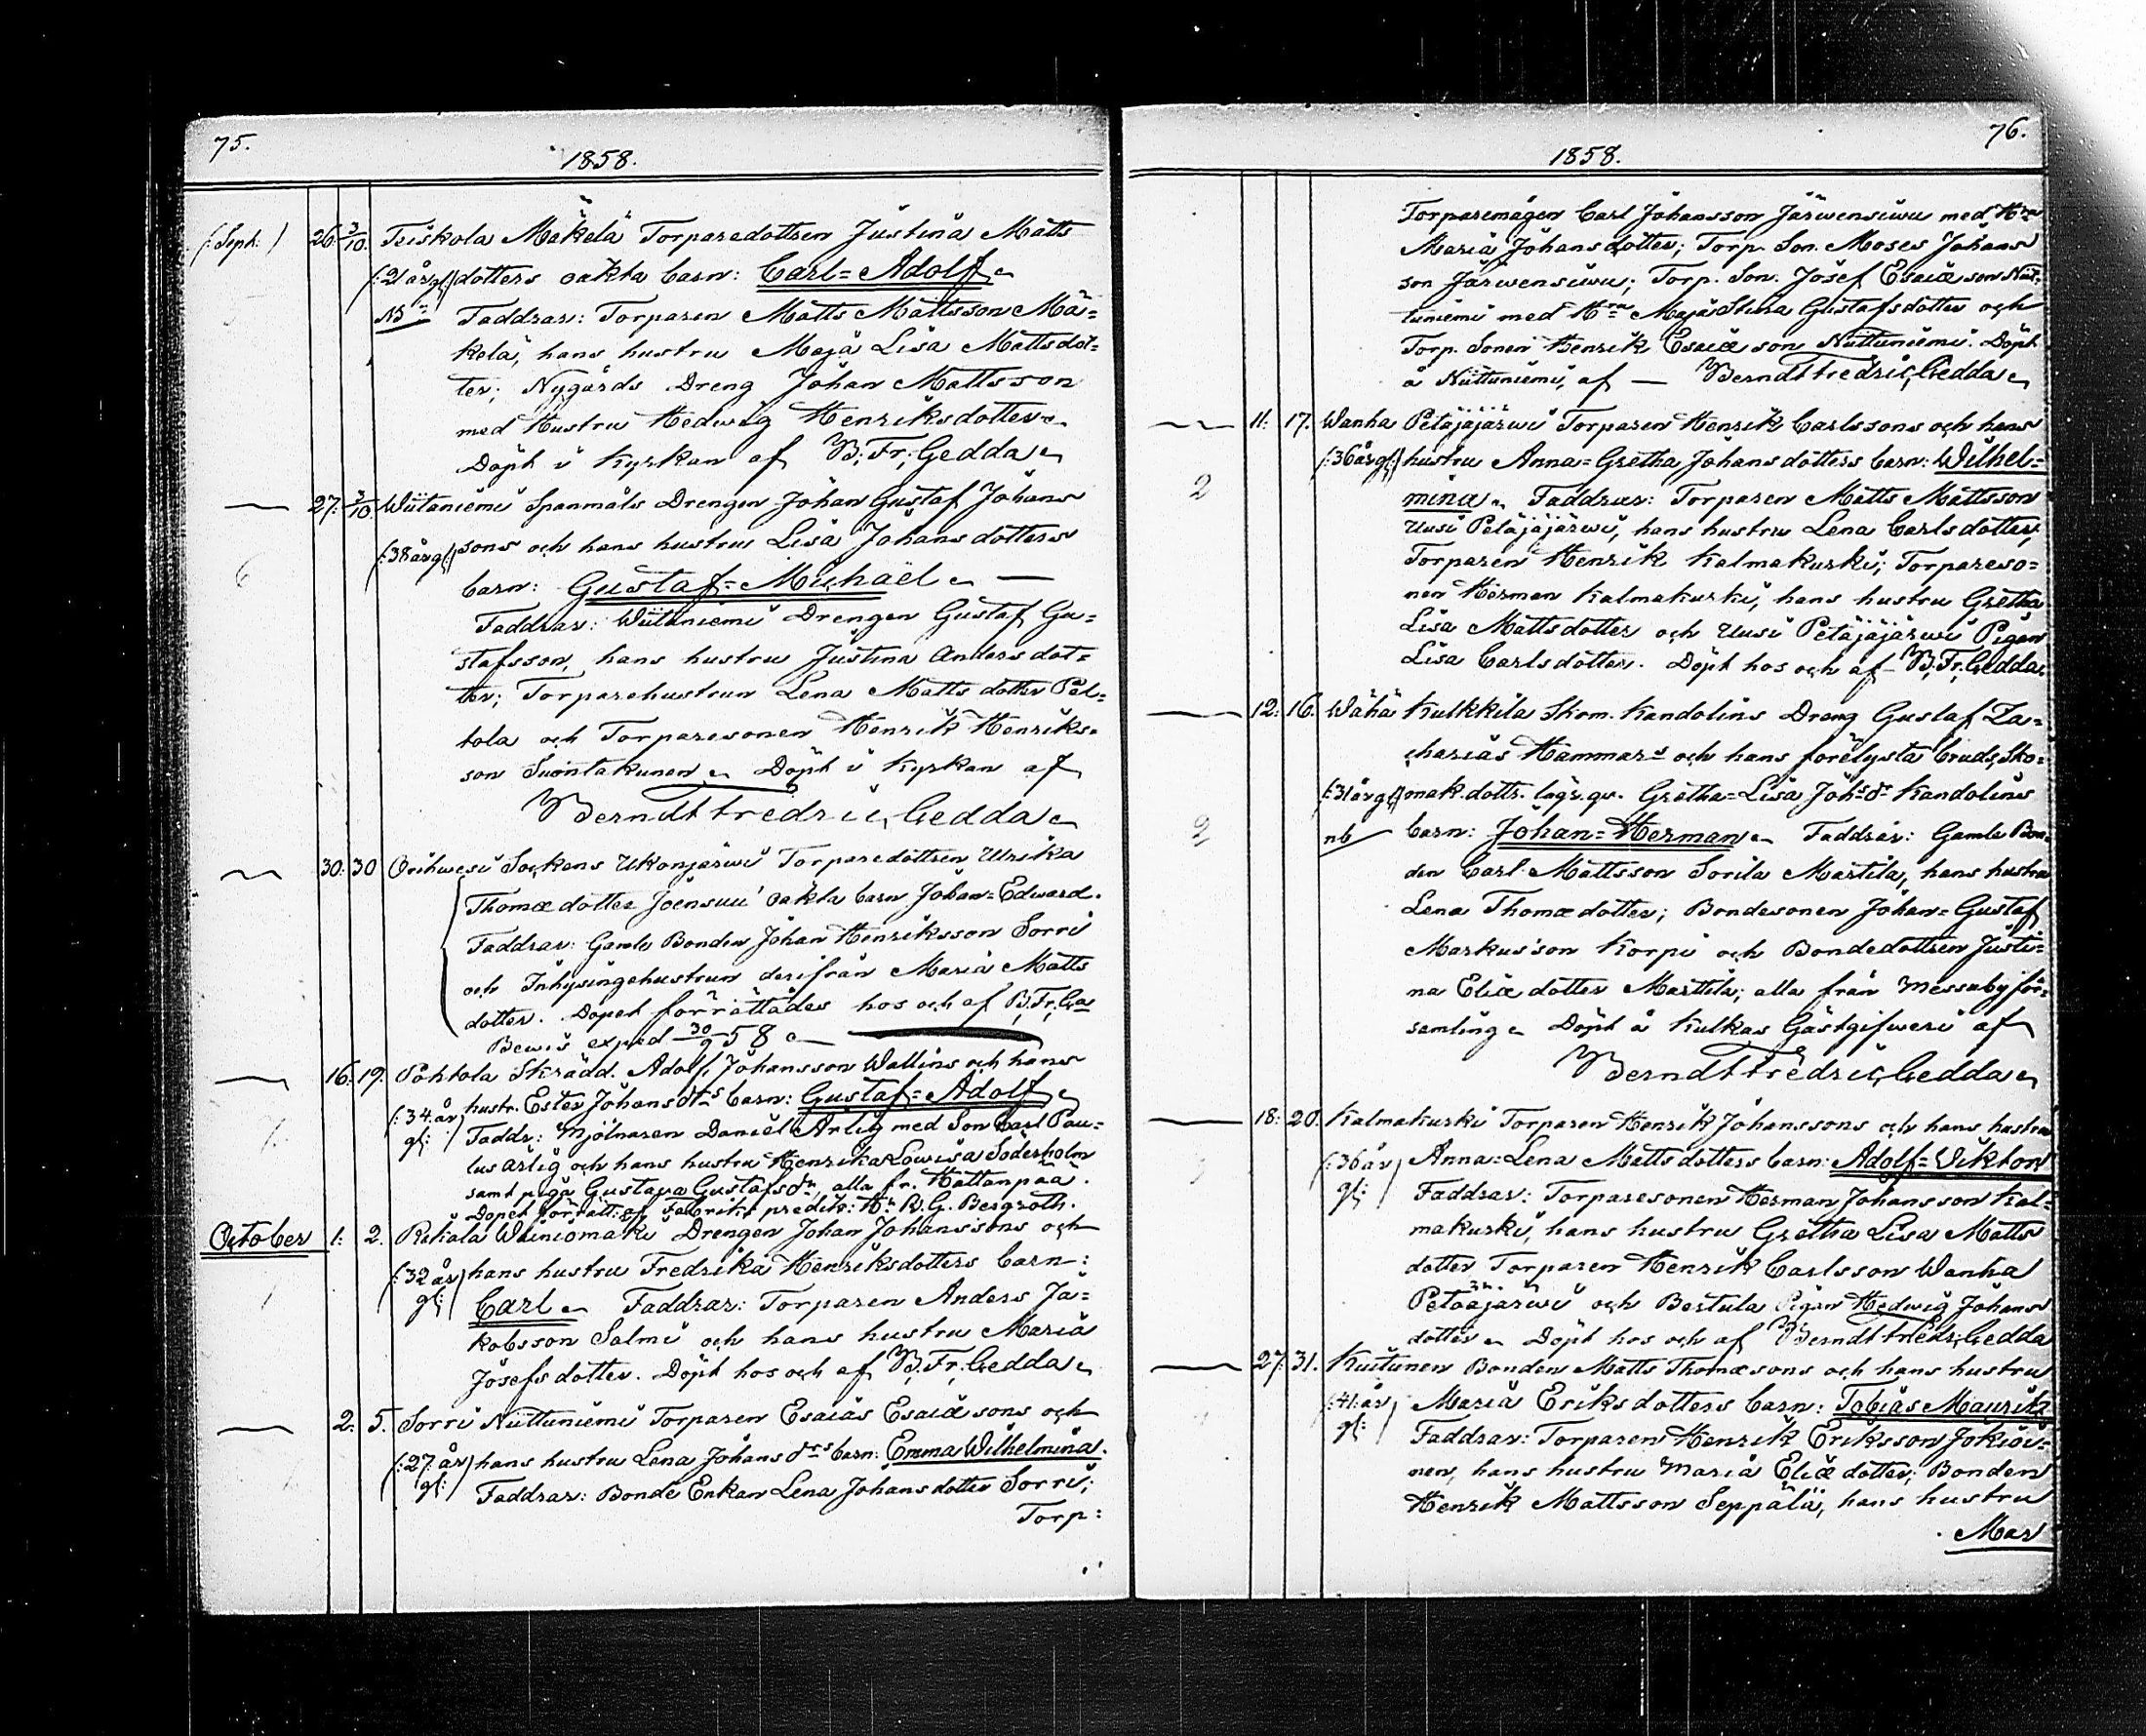 75.
1858.
(:Sept:) 26. 3/10. Teiskola Mäkelä Torparedottren Justina Matts
(:21 år gl:) dotters oäkta barn: Carl=Adolf
NB Faddrar: Torparen Matts Mattsson Mä=
kelä, hans hustru Maja Lisa Mattsdot=
ter; Nygårds Dreng Johan Mattsson
med Hustru Hedwig Henriksdotter
Döpt i Kyrkan af B: Fr: Gedda
27. 3/10. Wiitaniemi Spanmåls Drengen Johan Gustaf Johans
(:38 år gl:) sons och hans hustru Lisa Johansdotters
6
barn: Gustaf=Michaël
Faddrar: Wiitaniemi Drengen Gustaf Gu=
stafsson, hans hustru Justina Andersdot=
ter; Torparehustrun Lena Mattsdotter Pel=
tola och Torparesonen Henrik Henriks=
son Suontakunen Döpt i Kyrkan af
Berndt Fredric Gedda
30. 30 Orihwesi Sockens Ukonjärwi Torparedottren Ulrika
Thomædotter Joensuu oäkta barn Johan=Edward.
Faddrar: Gamle Bonden Johan Henriksson Sorri
och Inhysingehustrun derifrån Maria Matts
dotter. Döpet förrättades hos och af B, Fr, Ga
Bewis exped 30/9 58
16. 19. Pohtola Skrädd. Adolf Johansson Wallins och hans
(:34 år gl:) hustr. Ester Johansdts barn: Gustaf=Adolf
Faddr: Mjölnaren Daniël Arlig med Son Carl Pau=
lus Arlig och hans hustru Henrika Lowisa Söderholm
samt piga Gustava Gustafsdr, alla fr. Hattanpää.
Dopet förrätt: af Fabriks predik: Hr B. G. Bergroth.
October 1: 2. Rikala Wäiniömäki Drengen Johan Johanssons och
(:32 år gl:) hans hustru Fredrika Henriksdotters barn:
Carl Faddrar: Torparen Anders Ja=
kobsson Salmi och hans hustru Maria
Josefsdotter. Döpt hos och af B. Fr: Gedda
2: 5. Sorri Niittuniemi Torparen Esaias Esaiæsons och
(:27 år gl:) hans hustru Lena Johansdrs barn: Emma Wilhelmina.
Faddrar: Bonde Enkan Lena Johansdotter Sorri;
Torp:
76.
1858.
Torparemågen Carl Johansson Järwensiwu med Hru
Maria Johansdotter; Torp. Son. Moses Johans
son Järwensiwu; Torp. Son. Josef Esaiæson Niit=
tuniemi med Hru Maja Stina Gustafsdotter och
Torp. Sonen Henrik Esaiæson Niittuniemi. Döpt
å Niittuniemi, af Berndt Fredric Gedda
11: 17. Wanha Petäjäjärwi Torparen Henrik Carlssons och hans
(:36 år gl:) hustru Anna=Gretha Johansdotters barn: Wilhel=
2
mina Faddrar: Torparen Matts Mattsson
Uusi Petäjäjärwi, hans hustru Lena Carlsdotter,
Torparen Henrik Kalmakurki; Torpareso=
nen Herman Kalmakurki, hans hustru Gretha
Lisa Mattsdotter och Uusi Petäjäjärwi Pigan
Lisa Carlsdotter. Döpt hos och af B, Fr, Gedda
12: 16. Wähä Kulkkila Skom. Kandolins Dreng Gustaf Za=
charias Hammars och hans förelysta brud, Sko=
(:31 år gl:) mak. dottr. lägr. qv. Gretha=Lisa Johsdr Kandolins
2 nb barn: Johan=Herman Faddrar: Gamle Bon=
den Carl Mattsson Sorila Marttila, hans hustru
Lena Thomædotter; Bondesonen Johan=Gustaf
Markusson Korpi och Bondedottren Justi=
na Eliædotter Marttila; alla från Messuby för=
samling Döpt å Kulkas Gästgifweri af
Berndt Fredric Gedda
18: 20. Kalmakurki Torparen Henrik Johanssons och hans hustru
(:36 år gl:) Anna=Lena Mattsdotters barn: Adolf=Wiktor
Faddrar: Torparesonen Herman Johansson Kal=
makurki, hans hustru Gretha Lisa Matts
dotter Torparen Henrik Carlsson Wanha
Petäjäjärwi och Bertula Pigan Hedwig Johans
dotter Döpt hos och af Berndt Fredr. Gedda
27. 31. Kuitunen Bonden Matts Thomæsons och hans hustru
(:41. år gl:) Maria Eriksdotters barn: Tobias Mauritz
Faddrar: Torparen Henrik Eriksson Jokioi=
nen, hans hustru Maria Eliædotter; Bonden
Henrik Mattsson Seppälä, hans hustru
Mar